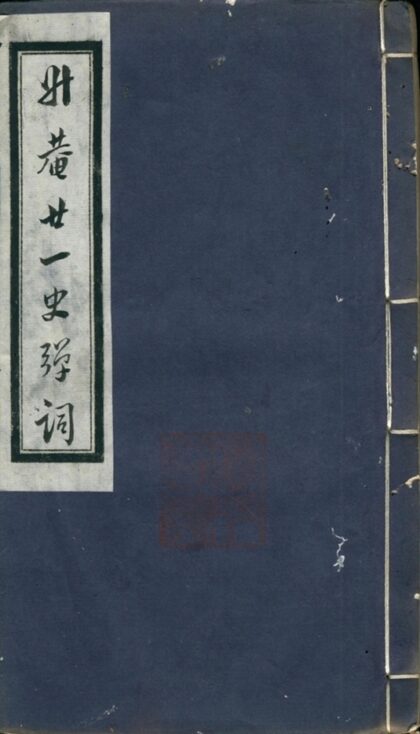 升菴廿一史弹词